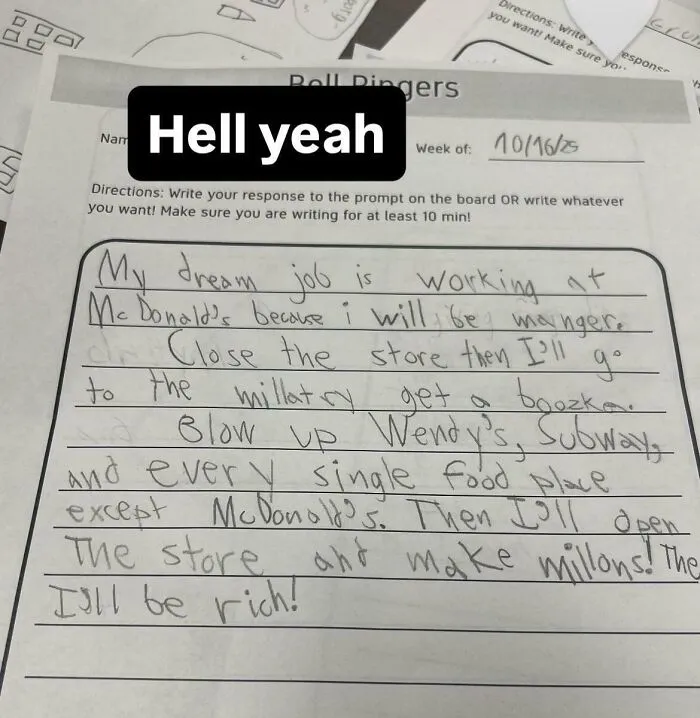 Directions: Write
you want! Make sure you
esponse
Bell Ringers
Hell yeah
Week of: 10/16/25
Directions: Write your response to the prompt on the board OR write whatever
you want! Make sure you are writing for at least 10 min!
My dream job is working at
McDonald's because i will be manger.
Close the store then I'll go
to the millatry get a boozka.
Blow up Wendy's, Subway,
and every single food place
except McDonold's. Then I'll open
The store and make millons! The
I'll be rich!